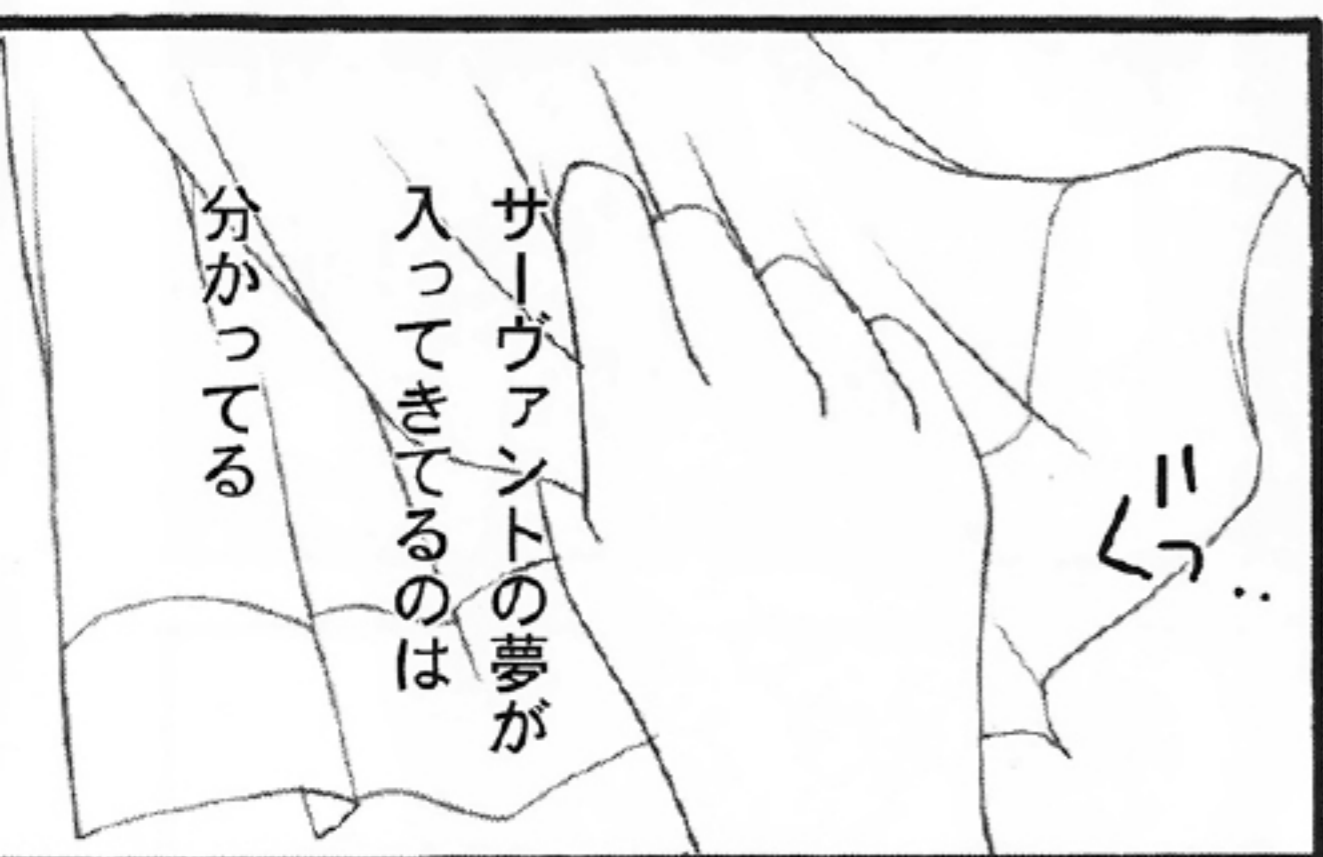 ぐっ‥
サーヴァントの夢が
入ってきてるのは
分かってる